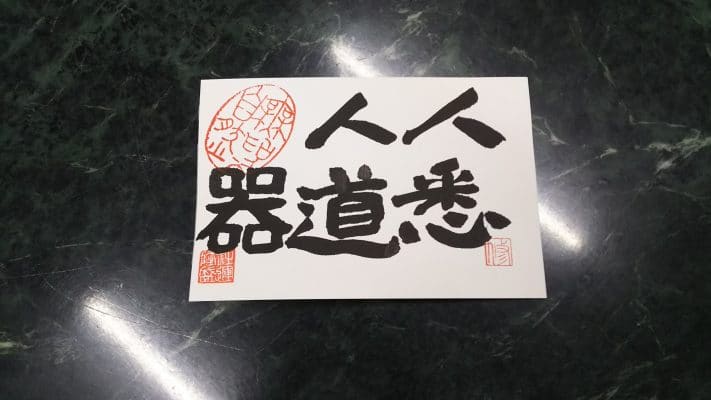 人人
悉道器